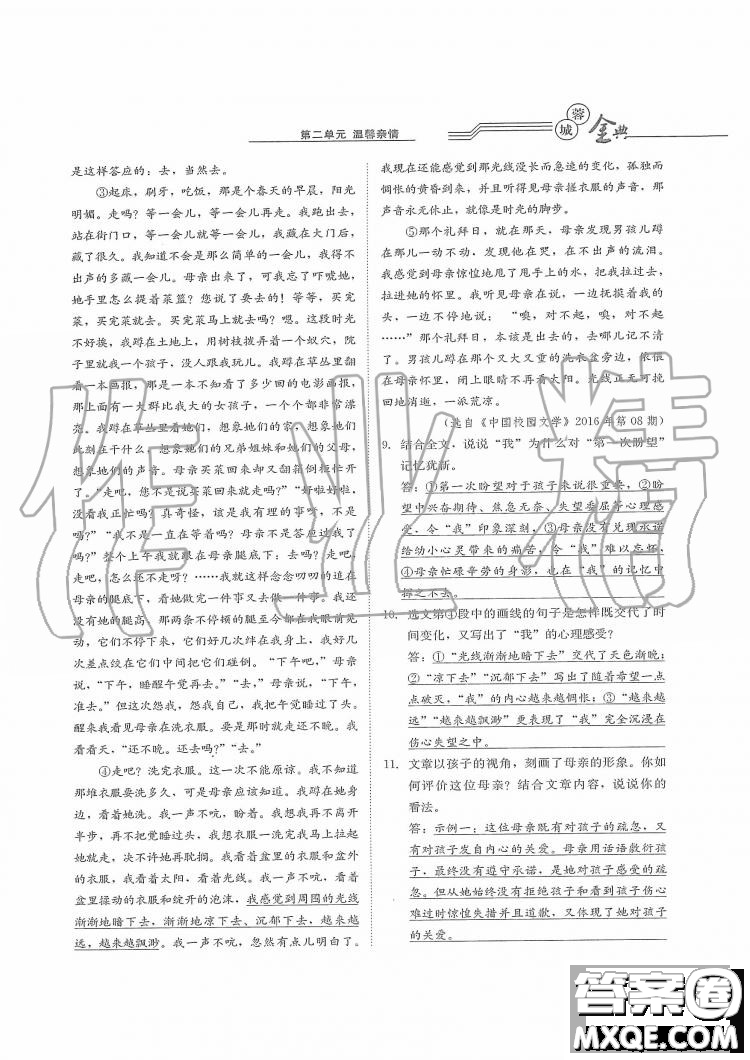 第二单元 温馨亲情
蓉城金典
是这样答应的：去，当然去。
③起床，刷牙，吃饭，那是个春天的早晨，阳光
明媚。走吗？等一会儿，等一会儿再走。我跑出去，
站在街门口，等一会儿就等一会儿。我藏在大门后，
藏了很久。我知道不会是那么简单的一会儿，我得不
出声的多藏一会儿。母亲出来了，可我忘了吓唬她，
她手里怎么提着菜篮？您说了要去的！等等，买完
菜，买完菜就去。买完菜马上就去吗？嗯。这段时光
不好挨。我蹲在土地上，用树枝拨弄着一个蚁穴，院
子里就我一个孩子，没人跟我玩儿。我蹲在草丛里翻
看一本画报，那是一本不知看了多少回的电影画报，
那上面有一大群比我大的女孩子，一个个都非常漂
亮。我蹲在草丛里看她们，想象她们的家，想象她们
此刻在干什么，想象她们的兄弟姐妹和她们的父母，
想象她们的声音。母亲买菜回来却又翻箱倒柜忙开
了。“走吧，您不是说买菜回来就走吗？”“好啦好啦，
没看我正忙吗？真奇怪，该是我有理的事呀，不是
吗？”“我不是一直在等着吗？母亲不是答应过我了
吗？”整个上午我就跟在母亲腿底下：去吗？去吧，
走吧，怎么还不走呀？……我就这样念念叨叨的追在
母亲的腿底下，看她做完一件事又去做一件事。我还
没有她的腿高，那两条不停顿的腿至今都在我眼前晃
动，它们不停下来，它们好几次绊在我身上，我好几
次差点绞在它们中间把它们碰倒。“下午吧，”母亲
说，“下午，睡醒午觉再去。”“去，”母亲说，“下午，
准去。”但这次怨我，怨我自己，我把午觉睡过了头。
醒来我看见母亲在洗衣服。要是那时就走还不晚。我
看看天，“还不晚。还去吗？”“去。”
④走吧？洗完衣服。这一次不能原谅。我不知道
那堆衣服要洗多久，可是母亲应该知道。我蹲在她身
边，看着她洗。我一声不吭，盼着。我想我再不离开
半步，再不把觉睡过头。我想衣服一洗完我马上拉起
她就走，决不许她再耽搁。我看着盆里的衣服和盆外
的衣服，我看着太阳，看着光线。我一声不吭。看着
盆里揉动的衣服和绽开的泡沫，我感觉到周围的光线
渐渐地暗下去，渐渐地凉下去、沉郁下去，越来越
远，越来越飘渺。我一声不吭，忽然有点儿明白了。
我现在还能感觉到那光线漫长而急遽的变化，孤独而
惆怅的黄昏到来，并且听得见母亲搓衣服的声音，那
声音永无休止，就像是时光的脚步。
⑤那个礼拜日，就在那天，母亲发现男孩儿蹲
在那儿一动不动，发现他在哭，在不出声的流泪。
我感觉到母亲惊惶地甩了甩手上的水，把我拉过去，
拉进她的怀里。我听见母亲在说，一边抚摸着我的
头，一边不停地说：“噢，对不起，噢，对不起
……”那个礼拜日，本该是出去的，去哪儿记不清
了。男孩儿蹲在那个又大又重的洗衣盆旁边，依偎
在母亲怀里，闭上眼睛不再看太阳。光线正无可挽
回地消逝，一派荒凉。
（选自《中国校园文学》2016年第08期）
9. 结合全文，说说“我”为什么对“第一次盼望”
记忆犹新。
答：①第一次盼望对于孩子来说很重要，②盼
望中兴奋期待、焦急无奈、失望委屈等心理感
受，令“我”印象深刻，③母亲没有兑现承诺
给幼小心灵带来的痛苦，令“我”难以忘怀，
④母亲忙碌辛劳的身影，也在“我”的记忆中
挥之不去。
10. 选文第④段中的画线的句子是怎样既交代了时
间变化，又写出了“我”的心理感受？
答：①“光线渐渐地暗下去”交代了天色渐晚；
②“凉下去”“沉郁下去”写出了随着希望一点
点破灭，“我”的内心越来越惆怅；③“越来越
远”“越来越飘渺”更表现了“我”完全沉浸在
伤心失望之中。
11. 文章以孩子的视角，刻画了母亲的形象。你如
何评价这位母亲？结合文章内容，说说你的
看法。
答：示例一：这位母亲既有对孩子的疏忽，又
有对孩子发自内心的关爱。母亲用话语敷衍孩
子，最终没有遵守承诺，是她对孩子感受的疏
忽。但从她始终没有拒绝孩子和看到孩子伤心
难过时惊惶失措并且道歉，又体现了她对孩子
的关爱。
作业精
答案圈
MXQE.COM